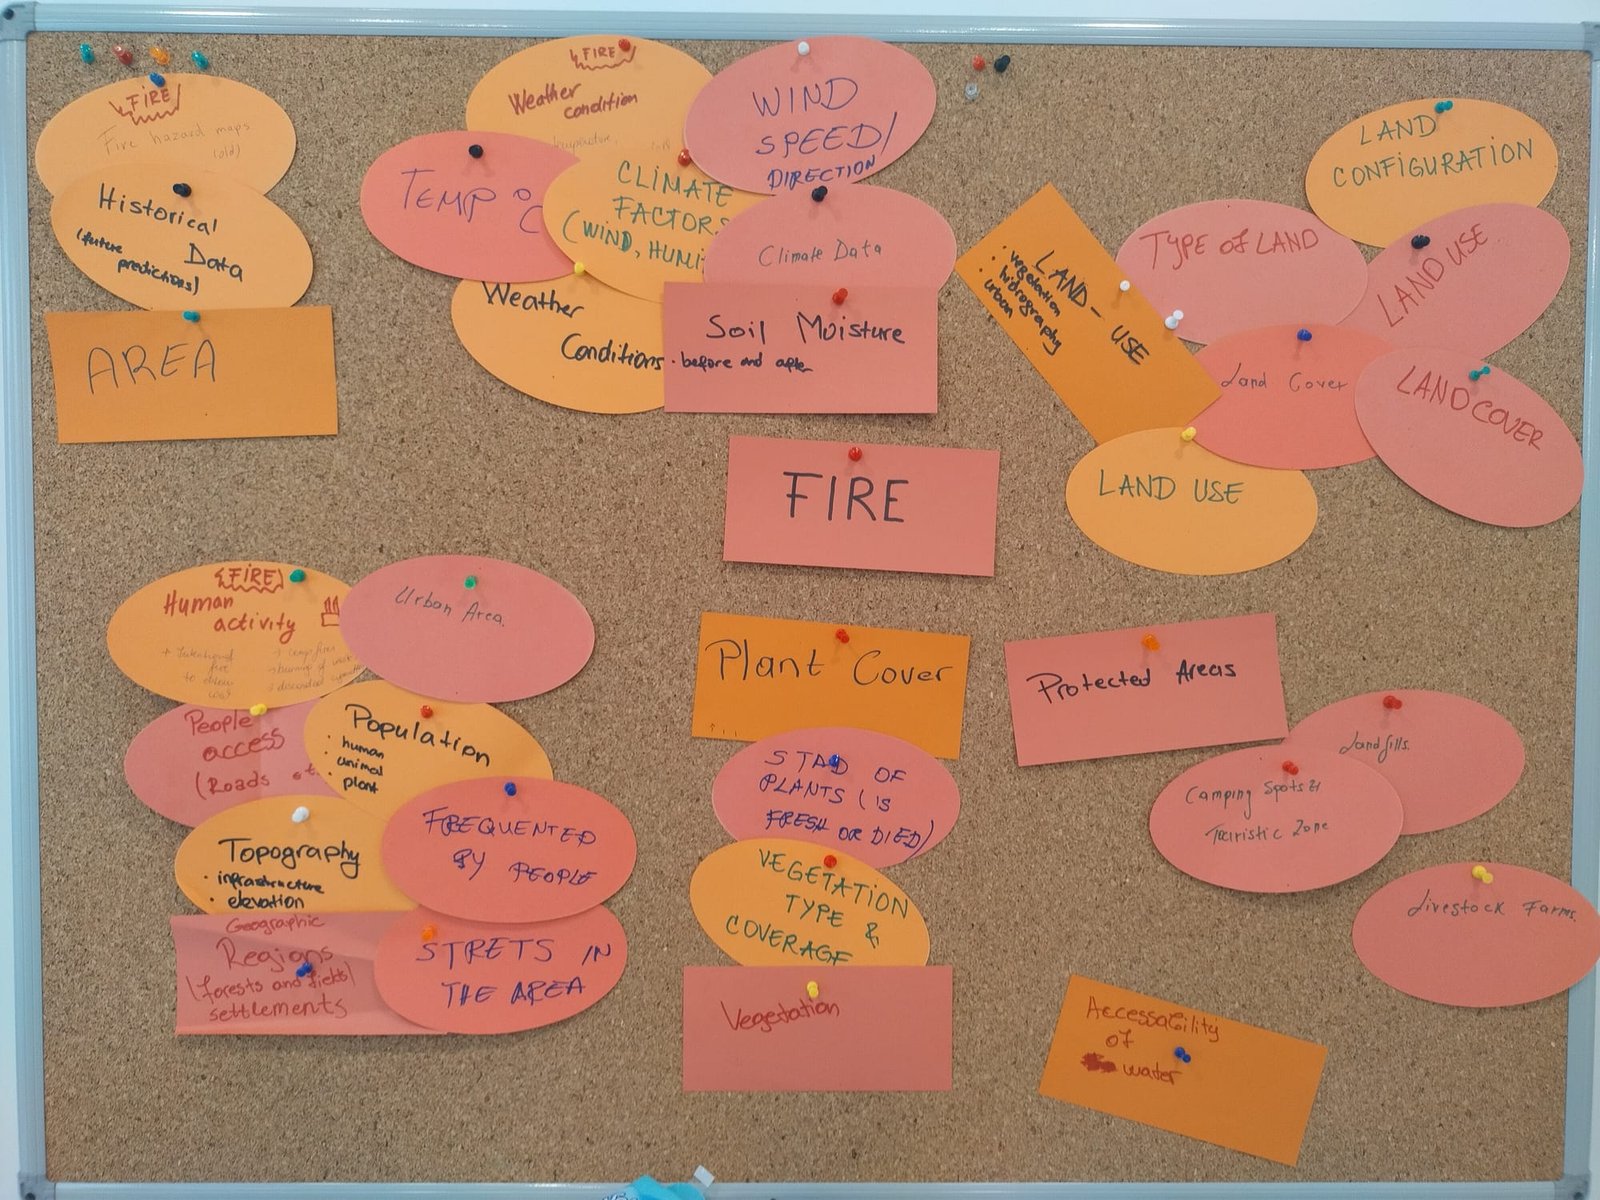 FIRE
Fire hazard maps
(old)
Historical
Data
(future
predictions)
AREA
FIRE
Weather
condition
TEMP °C
CLIMATE
FACTORS
(WIND, HUMI
WIND
SPEED/
DIRECTION
Climate Data
Weather
Conditions
Soil Moisture
· before and after
LAND
CONFIGURATION
TYPE OF LAND
LAND USE
LAND - USE
· vegetation
· hidrography
· urban
Land Cover
LANDCOVER
LAND USE
FIRE
FIRE
Human
activity
Urban Area.
People
access
(Roads
Population
· human
· animal
· plant
Topography
· infrastructure
· elevation
FREQUENTED
BY PEOPLE
Geographic
Regions
(forests and fields)
settlements
STRETS IN
THE AREA
Plant Cover
STAD OF
PLANTS (IS
FRESH OR DIED)
VEGETATION
TYPE &
COVERAGE
Vegetation
Protected Areas
Landfills.
Camping Spots &
Touristic Zone
Livestock Farms.
Accessability
of
water